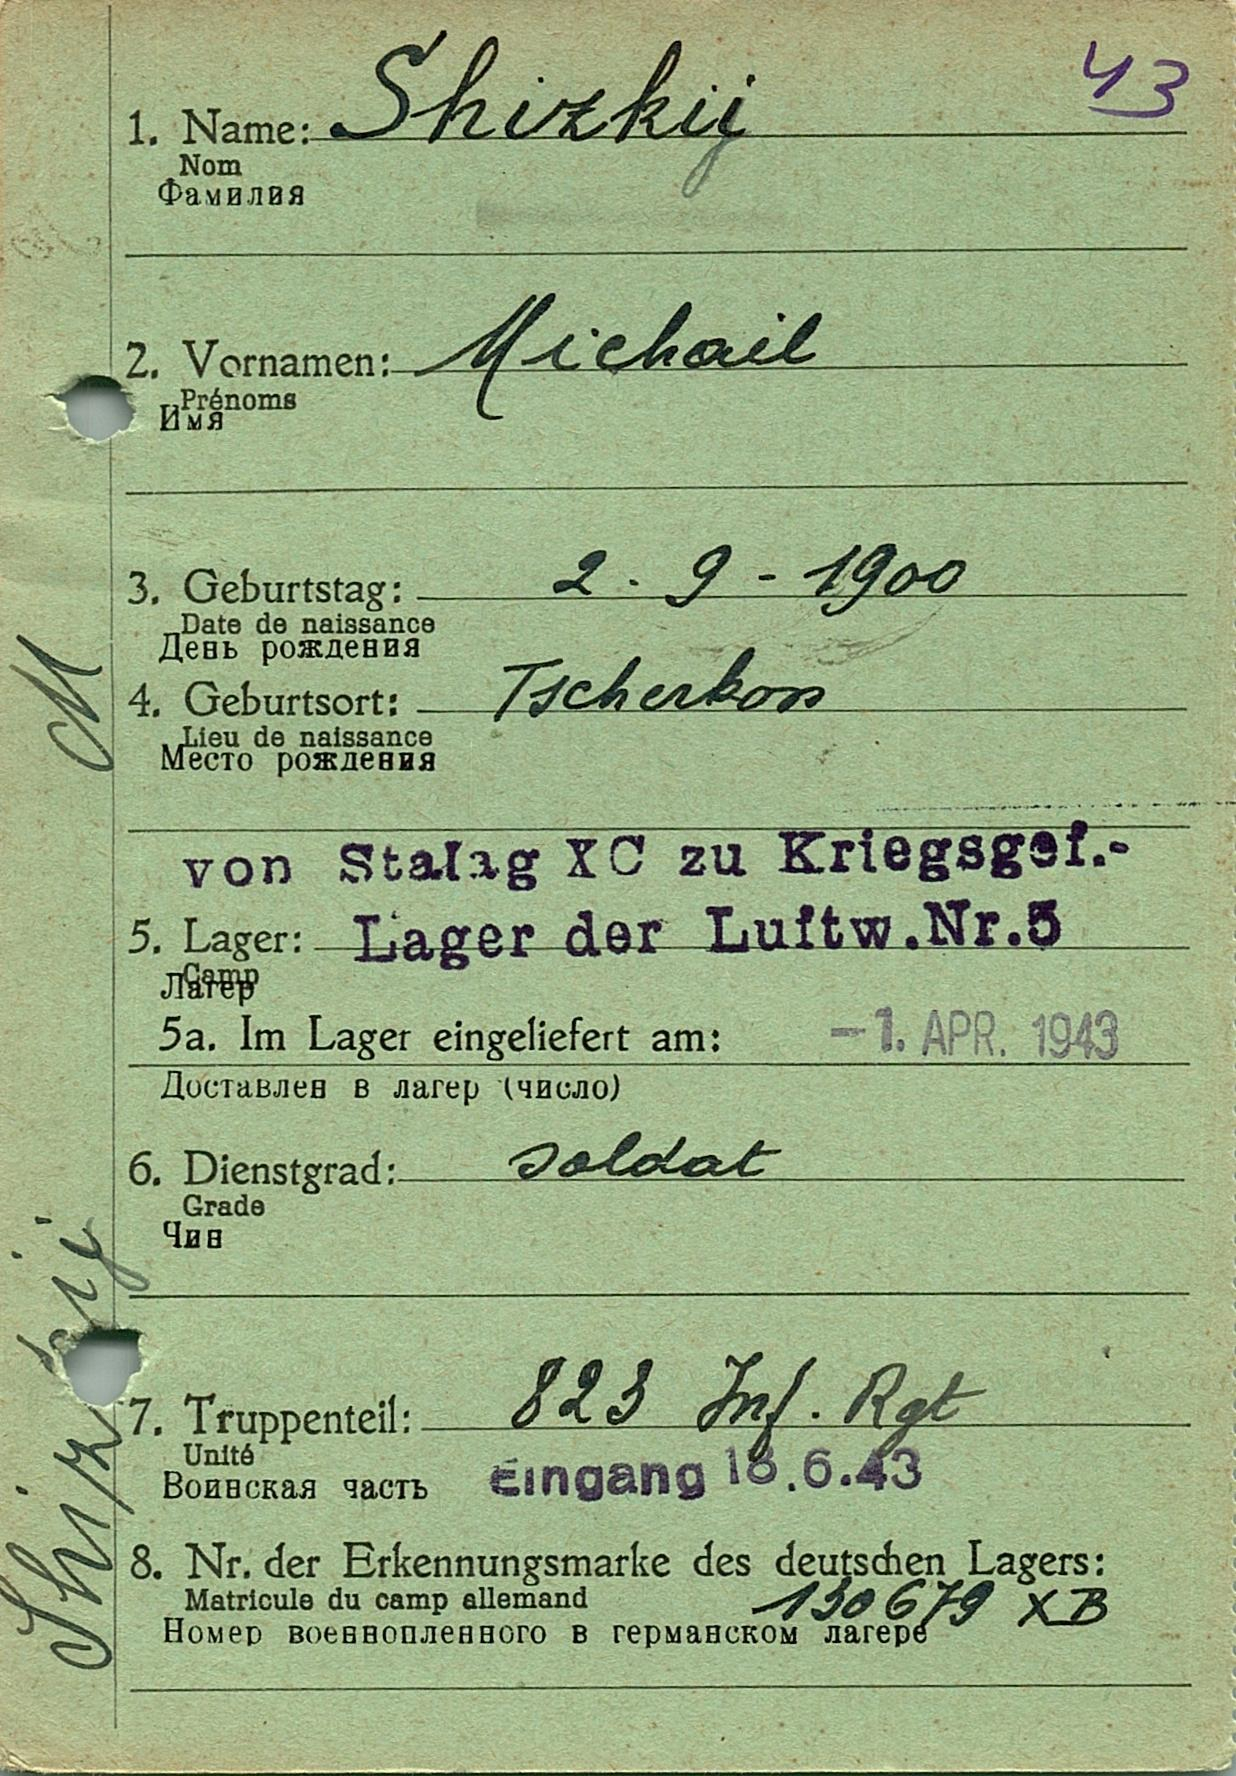 43
1. Name: Shizkij
Nom
Фамилия
2. Vornamen: Michail
Prénoms
Имя
3. Geburtstag: 2. 9 - 1900
Date de naissance
День рождения
4. Geburtsort: Tscherkoss
Lieu de naissance
Место рождения
von Stalag XC zu Kriegsgef.-
5. Lager: Lager der Luftw.Nr.5
Camp
Лагер
5a. Im Lager eingeliefert am: -1. APR. 1943
Доставлен в лагер (число)
6. Dienstgrad: soldat
Grade
Чин
7. Truppenteil: 823 Inf. Rgt
Unité
Воинская часть Eingang 18.6.43
8. Nr. der Erkennungsmarke des deutschen Lagers:
Matricule du camp allemand 130679 XB
Номер военнопленного в германском лагере
Shizkij M